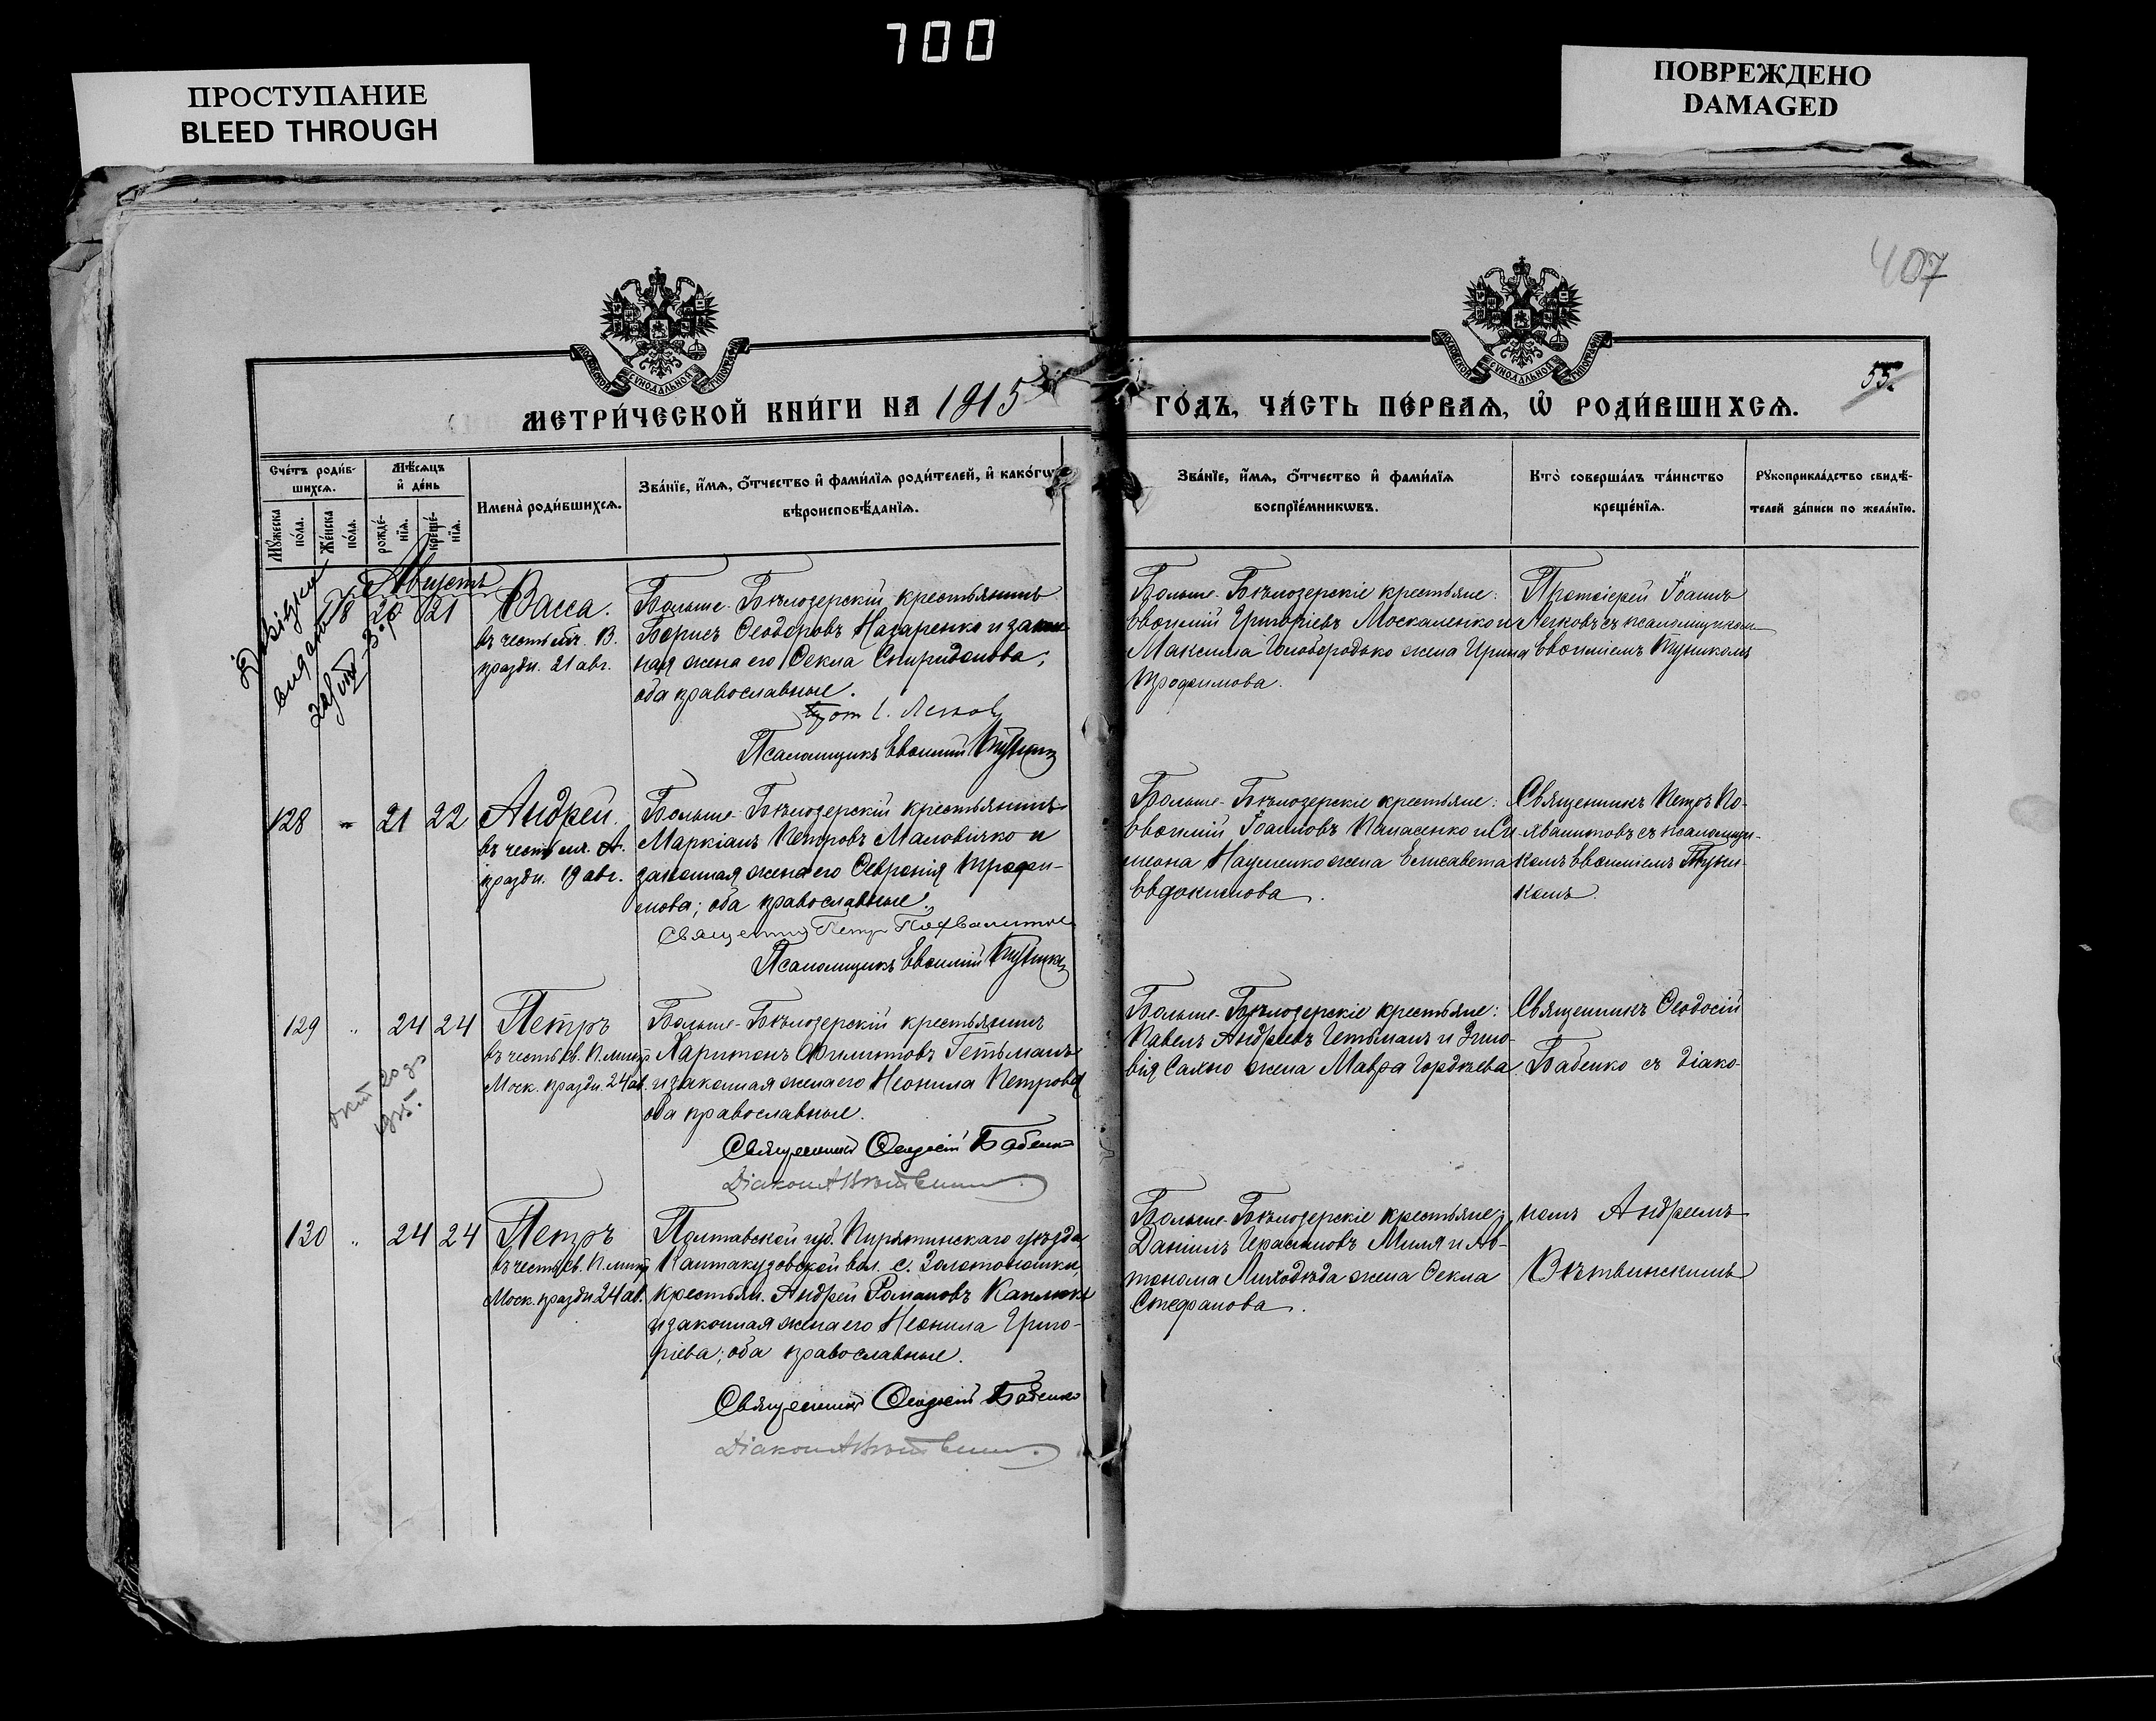 700
ПРОСТУПАНИЕ
BLEED THROUGH
ПОВРЕЖДЕНО
DAMAGED
407
55.
МОСКОВСКОЙ СѴНОДАЛЬНОЙ ТИПОГРАФІИ
МОСКОВСКОЙ СѴНОДАЛЬНОЙ ТИПОГРАФІИ
МЕТРИ́ЧЕСКОЙ КНИ́ГИ НА 1915
ГО́ДЪ, ЧА́СТЬ ПЕ́РВАѦ, Ѡ РОДИ́ВШИХСѦ.
Сче́тъ роди́в-
шихсѧ.
Мѣ́сѧцъ
и҆ де́нь
Мꙋ́жеска
по́ла.
Же́нска
по́ла.
рожде́-
нїѧ.
креще́-
нїѧ.
Имена̀ роди́вшихсѧ.
Зва́нїе, и҆́мѧ, ѻ҆́тчество и҆ фами́лїѧ роди́телей, и҆ како́гѡ
вѣроисповѣ́данїѧ.
Зва́нїе, и҆́мѧ, ѻ҆́тчество и҆ фами́лїѧ
воспрїе́мникѡвъ.
Кто̀ соверша́лъ та́инство
креще́нїѧ.
Рꙋкоприкла́дство свидѣ́-
телей за́писи по жела́нїю.
Августъ
118 20 21
Васса.
въ честь мч. В.
праздн. 21 авг.
Больше-Бѣлозерскій крестьянинъ
Борисъ Ѳеодоровъ Назаренко и закон-
ная жена его Ѳекла Спиридонова;
оба православные.
Прот. І. Легков
Псаломщикъ Евѳимій
Больше-Бѣлозерскіе крестьяне:
Евѳимій Григоріевъ Москаленко и
Максима Голобородько жена Ирина
Трофимова.
Протоіерей Іоаннъ
Легковъ съ псаломщикомъ
Евѳиміемъ
128 " 21 22
Андрей.
въ честь мч. А.
праздн. 19 авг.
Больше-Бѣлозерскій крестьянинъ
Маркіанъ Петровъ Маловичко и
законная жена его Ѳевронія Трофи-
мова; оба православные.
Священник Петр Похвалитов
Псаломщикъ Евѳимій
Больше-Бѣлозерскіе крестьяне:
Евѳимій Іоанновъ Панасенко и Си-
меона Науменко жена Елисавета
Евдокимова.
Священникъ Петръ По-
хвалитовъ съ псаломщи-
комъ Евѳиміемъ
комъ.
129 " 24 24
Петръ
въ честь св. П. митр.
Моск. праздн. 24 ав.
Больше-Бѣлозерскій крестьянинъ
Харитонъ Филиповъ Гетьманъ
и законная жена его Неонила Петрова
оба православные.
Священникъ Ѳеодосій Бабенко
Діаконъ А. Вѣтвинскій
Больше-Бѣлозерскіе крестьяне:
Павелъ Андреевъ Гетьманъ и Зино-
вія Салыо жена Мавра Гордѣева
Священникъ Ѳеодосій
Бабенко съ діако-
130 " 24 24
Петръ
въ честь св. П. митр.
Моск. праздн 24 ав.
Полтавской губ. Пирятинскаго уѣзда,
Кантакузовской вол. с. Золотоношки,
крестьян. Андрей Романовъ
и законная жена его Неонила Григо-
ріева; оба православные.
Священникъ Ѳеодосій Бабенко
Діаконъ А. Вѣтвинскій
Больше-Бѣлозерскіе крестьяне;
Даніилъ Герасимовъ Миля и Ав-
тонома Лиходѣда жена Ѳекла
Стефанова.
номъ Андреемъ
Вѣтвинскимъ